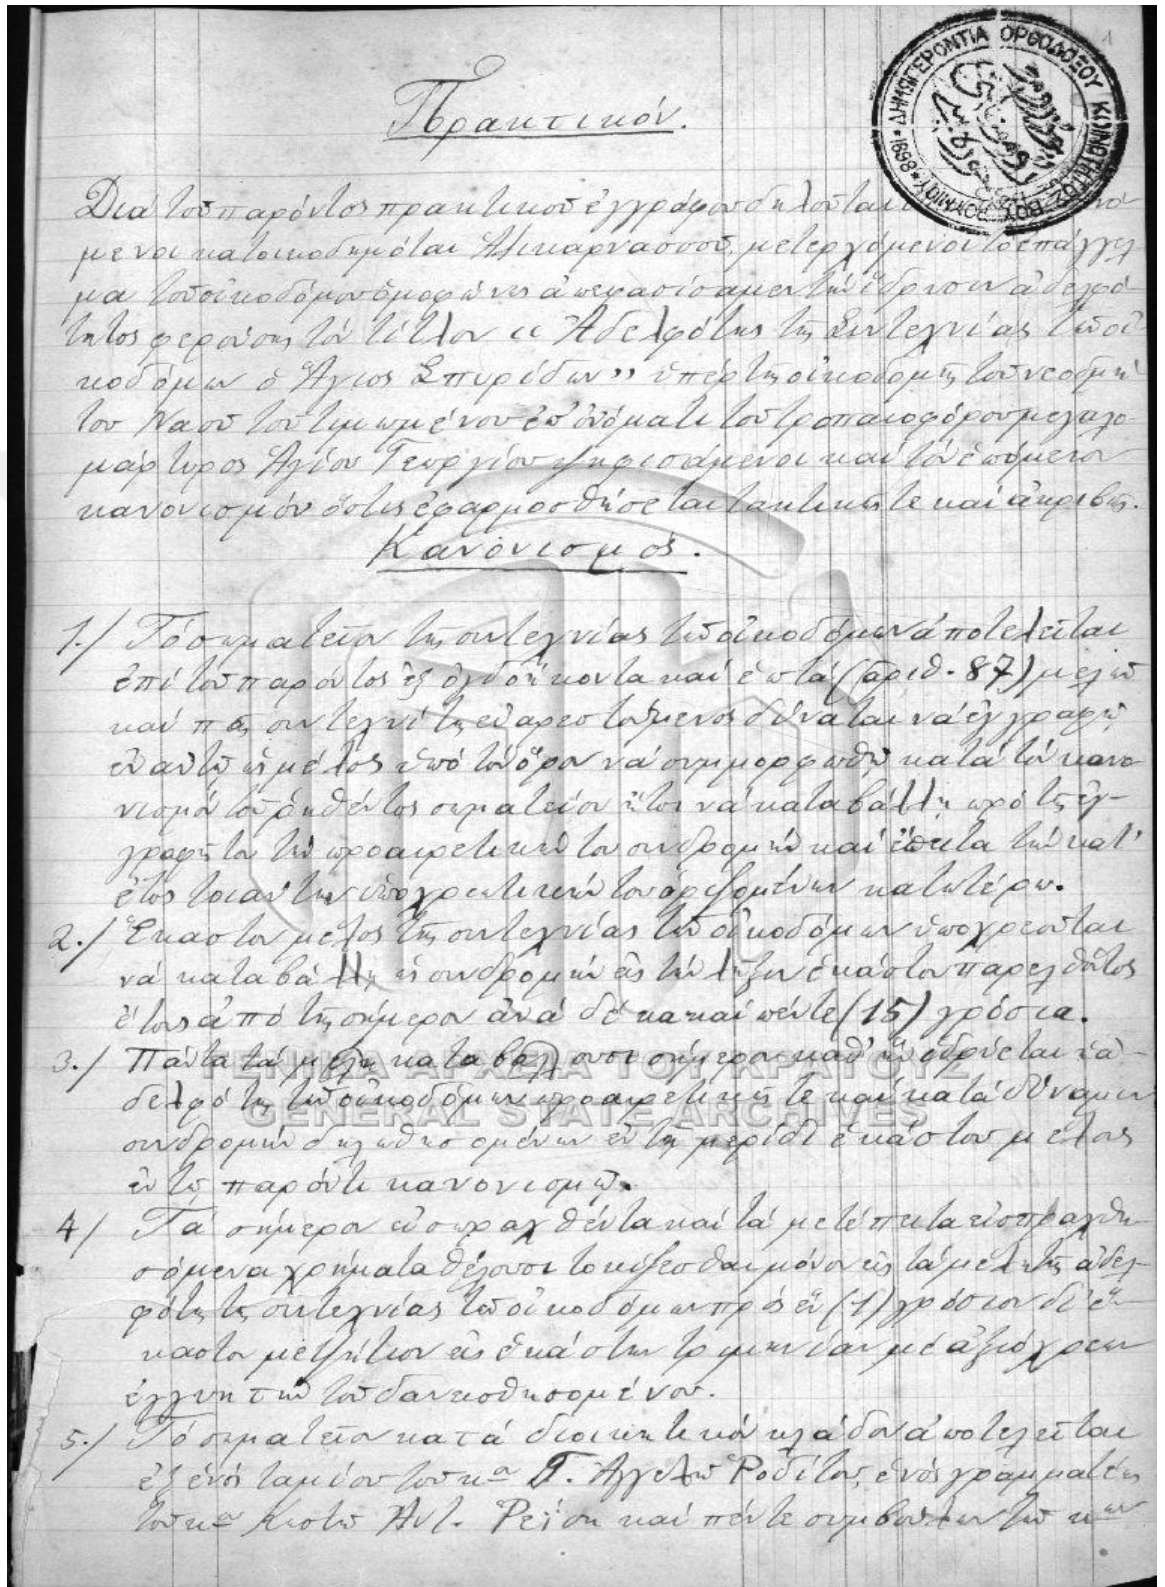 1
ΔΗΜΟΓΕΡΟΝΤΙΑ ΟΡΘΟΔΟΞΟΥ ΚΟΙΝΟΤΗΤΟΣ *1898*
Πρακτικόν.
Διά τοῦ παρόντος πρακτικοῦ ἐγγράφου δηλοῦται
μενοι κάτοικοι δημόται Ἁλικαρνασσοῦ, μετερχόμενοι τό ἐπάγγελ-
μα τοῦ οἰκοδόμου ὁμοφώνως ἀπεφασίσαμεν τήν ἵδρυσιν ἀδελφό-
τητος φερούσης τόν τίτλον «Ἀδελφότης τῆς Συντεχνίας τῶν οἰ-
κοδόμων ὁ Ἅγιος Σπυρίδων» ὑπέρ τῆς οἰκοδομῆς τοῦ νεοδμή-
του Ναοῦ τοῦ τιμωμένου ἐπ' ὀνόματι τοῦ τροπαιοφόρου μεγαλο-
μάρτυρος Ἁγίου Γεωργίου ψηφισάμενοι καί τόν ἑπόμενον
κανονισμόν ὅστις ἐφαρμοσθήσεται τακτικῶς τε καί ἀκριβῶς.
Κανονισμός.
1./ Τό σωματεῖον τῆς συντεχνίας τῶν οἰκοδόμων ἀποτελεῖται
ἐπί τοῦ παρόντος ἐξ ὀγδοήκοντα καί ἑπτά (ἀριθ. 87) μελῶν
καί πᾶς συντεχνίτης εὐαρεστούμενος δύναται νά ἐγγραφῇ
ἐν αὐτῷ ὡς μέλος ὑπό τόν ὅρον νά συμμορφωθῇ κατά τόν κανο-
νισμόν τοῦ ῥηθέντος σωματείου ἤτοι νά καταβάλλῃ πρό τῆς ἐγ-
γραφῆς του τήν προαιρετικήν του συνδρομήν καί ἔπειτα τήν κατ'
ἔτος τοιαύτην ὑποχρεωτικήν του ὁριζομένην κατωτέρω.
2./ Ἕκαστον μέλος τῆς συντεχνίας τῶν οἰκοδόμων ὑποχρεοῦται
νά καταβάλλῃ ὡς συνδρομήν εἰς τήν λῆξιν ἑκάστου παρελθόντος
ἔτους ἀπό τῆς σήμερον ἀνά δέκα καί πέντε (15) γρόσια.
3./ Πάντα τά μέλη καταβάλουσι σήμερον καθ' ἥν ἱδρύεται ἡ ἀ-
δελφότης τῶν οἰκοδόμων προαιρετικῶς τε καί κατά δύναμιν
συνδρομήν δηλωθησομένην ἐν τῇ μερίδι ἑκάστου μέλους
ἐν τῷ παρόντι κανονισμῷ.
4/ Τά σήμερον εἰσπραχθέντα καί τά μετέπειτα εἰσπραχθη-
σόμενα χρήματα θέλουσι τοκίζεσθαι μόνον εἰς τά μέλη τῆς ἀδελ-
φότητος τῆς συντεχνίας τῶν οἰκοδόμων πρός ἕν (1) γρόσιον δι' ἕ-
καστον μετζήτιον εἰς ἑκάστην τριμηνίαν μέ ἀξιόχρεων
ἐγγυητήν τοῦ δανεισθησομένου.
5./ Τό σωματεῖον κατά διοικητικόν κλάδον ἀποτελεῖται
ἐξ ἑνός ταμίου τοῦ κου Γ. Ἀγγελῆ Ροδίτου, ἑνός γραμματέως
τοῦ κου Κωστῆ Ἀντ. καί πέντε συμβούλων τῶν κων
ΓΕΝΙΚΑ ΑΡΧΕΙΑ ΤΟΥ ΚΡΑΤΟΥΣ
GENERAL STATE ARCHIVES